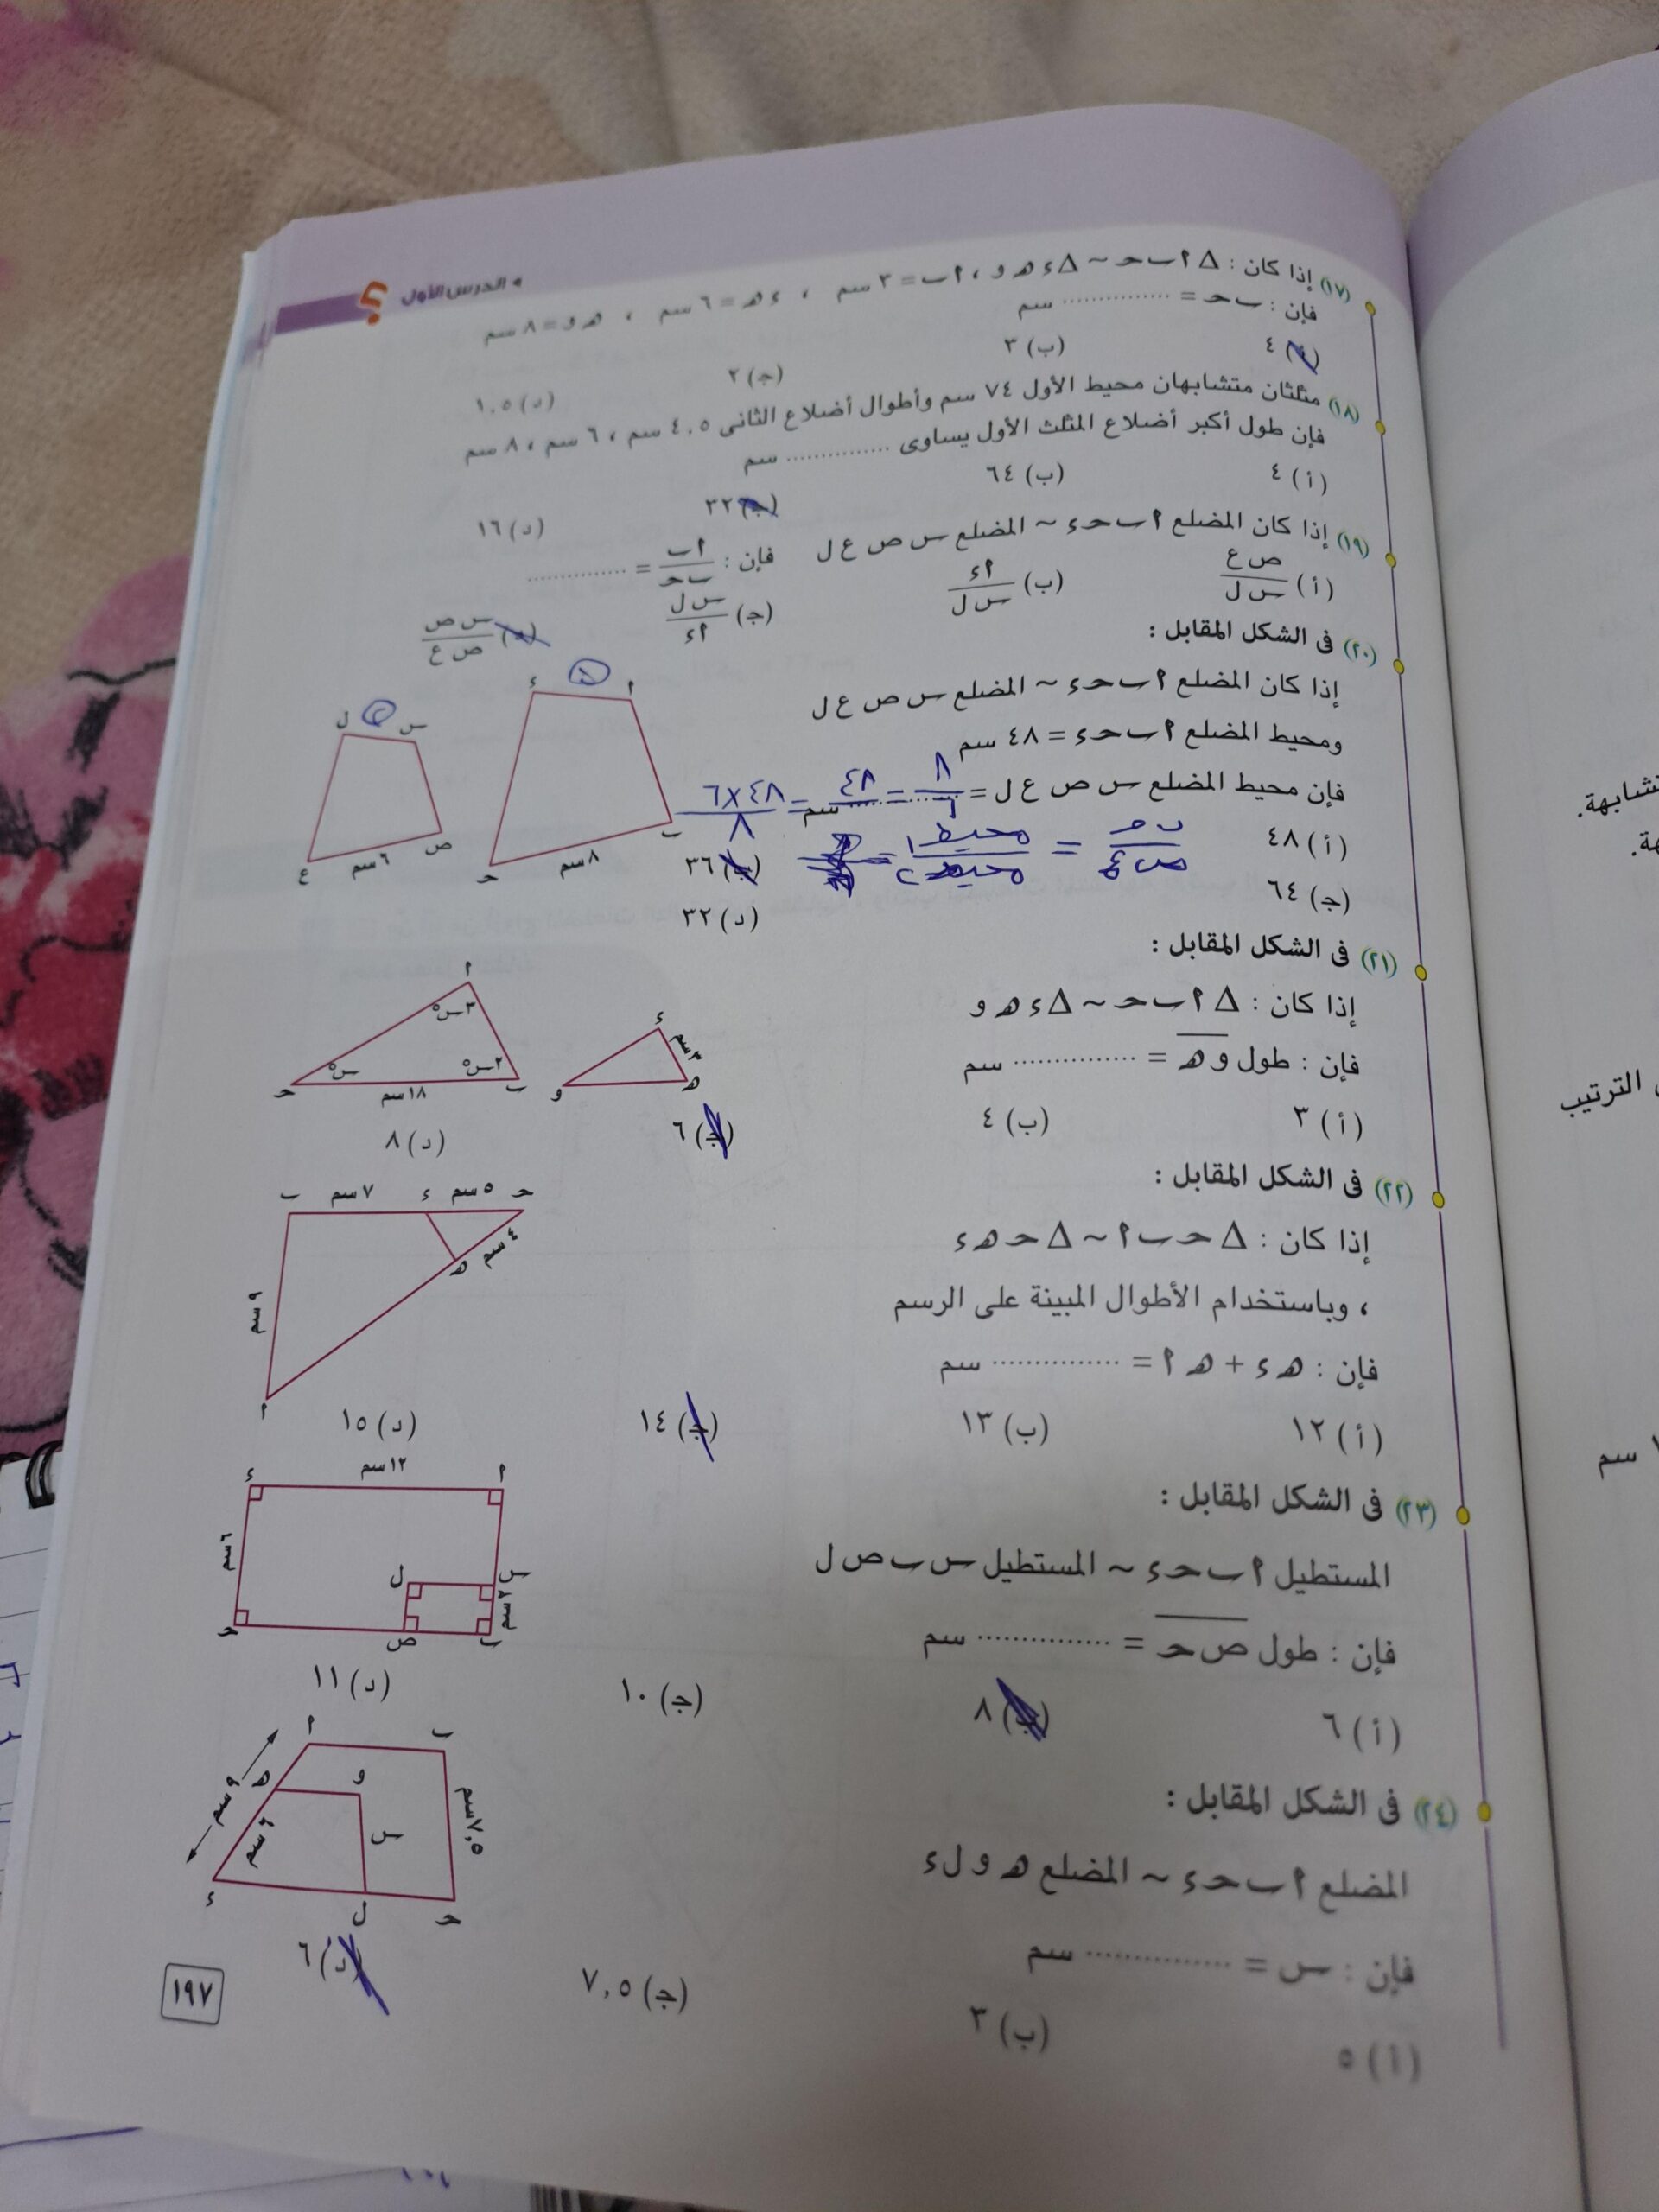 الدرس الأول
؟
(١٧) إذا كان : Δ ا ب حـ ~ Δ ء هـ و ، ا ب = ٣ سم ، ء هـ = ٦ سم ، هـ و = ٨ سم
فإن : ب حـ = ............... سم
(أ) ٤ (ب) ٣ (جـ) ٢ (د) ١,٥
(١٨) مثلثان متشابهان محيط الأول ٧٤ سم وأطوال أضلاع الثانى ٤,٥ سم ، ٦ سم ، ٨ سم
فإن طول أكبر أضلاع المثلث الأول يساوى ............... سم
(أ) ٤ (ب) ٦٤ (جـ) ٣٢ (د) ١٦
(١٩) إذا كان المضلع ا ب حـ ء ~ المضلع س ص ع ل فإن : ا ب / ب حـ = ...............
(أ) ص ع / س ل (ب) ا ء / س ل (جـ) س ل / ا ء (د) س ص / ص ع
(٢٠) فى الشكل المقابل :
إذا كان المضلع ا ب حـ ء ~ المضلع س ص ع ل
ومحيط المضلع ا ب حـ ء = ٤٨ سم
فإن محيط المضلع س ص ع ل = ............... سم
٨ = ٤٨ = ٦×٤٨ / ٨
ب حـ / ص ع = محيط ١ / محيط ٢
(أ) ٤٨ (ب) ٣٦
(جـ) ٦٤ (د) ٣٢
ا ء ب حـ ٨ سم
س ل ص ع ٦ سم
(٢١) فى الشكل المقابل :
إذا كان : Δ ا ب حـ ~ Δ ء هـ و
فإن : طول و هـ = ............... سم
(أ) ٣ (ب) ٤ (جـ) ٦ (د) ٨
ا ٣س° ٢س° س° ب حـ ١٨ سم
ء ٣ سم هـ و
(٢٢) فى الشكل المقابل :
إذا كان : Δ حـ ب ا ~ Δ حـ هـ ء
، وباستخدام الأطوال المبينة على الرسم
فإن : هـ ء + هـ ا = ............... سم
(أ) ١٢ (ب) ١٣ (جـ) ١٤ (د) ١٥
حـ ٥ سم ء ٧ سم ب
٤ سم هـ ٩ سم ا
(٢٣) فى الشكل المقابل :
المستطيل ا ب حـ ء ~ المستطيل س ب ص ل
فإن : طول ص حـ = ............... سم
(أ) ٦ (ب) ٨ (جـ) ١٠ (د) ١١
ا ١٢ سم ء
٦ سم س ل ٢ سم
ب ص حـ
(٢٤) فى الشكل المقابل :
المضلع ا ب حـ ء ~ المضلع هـ و ل ء
فإن : س = ............... سم
(أ) ٥ (ب) ٣ (جـ) ٧,٥ (د) ٦
ب ا
٩ سم هـ و ٦ سم س ٧,٥ سم
حـ ل ء
١٩٧
تشابهة.
الترتيب
سم